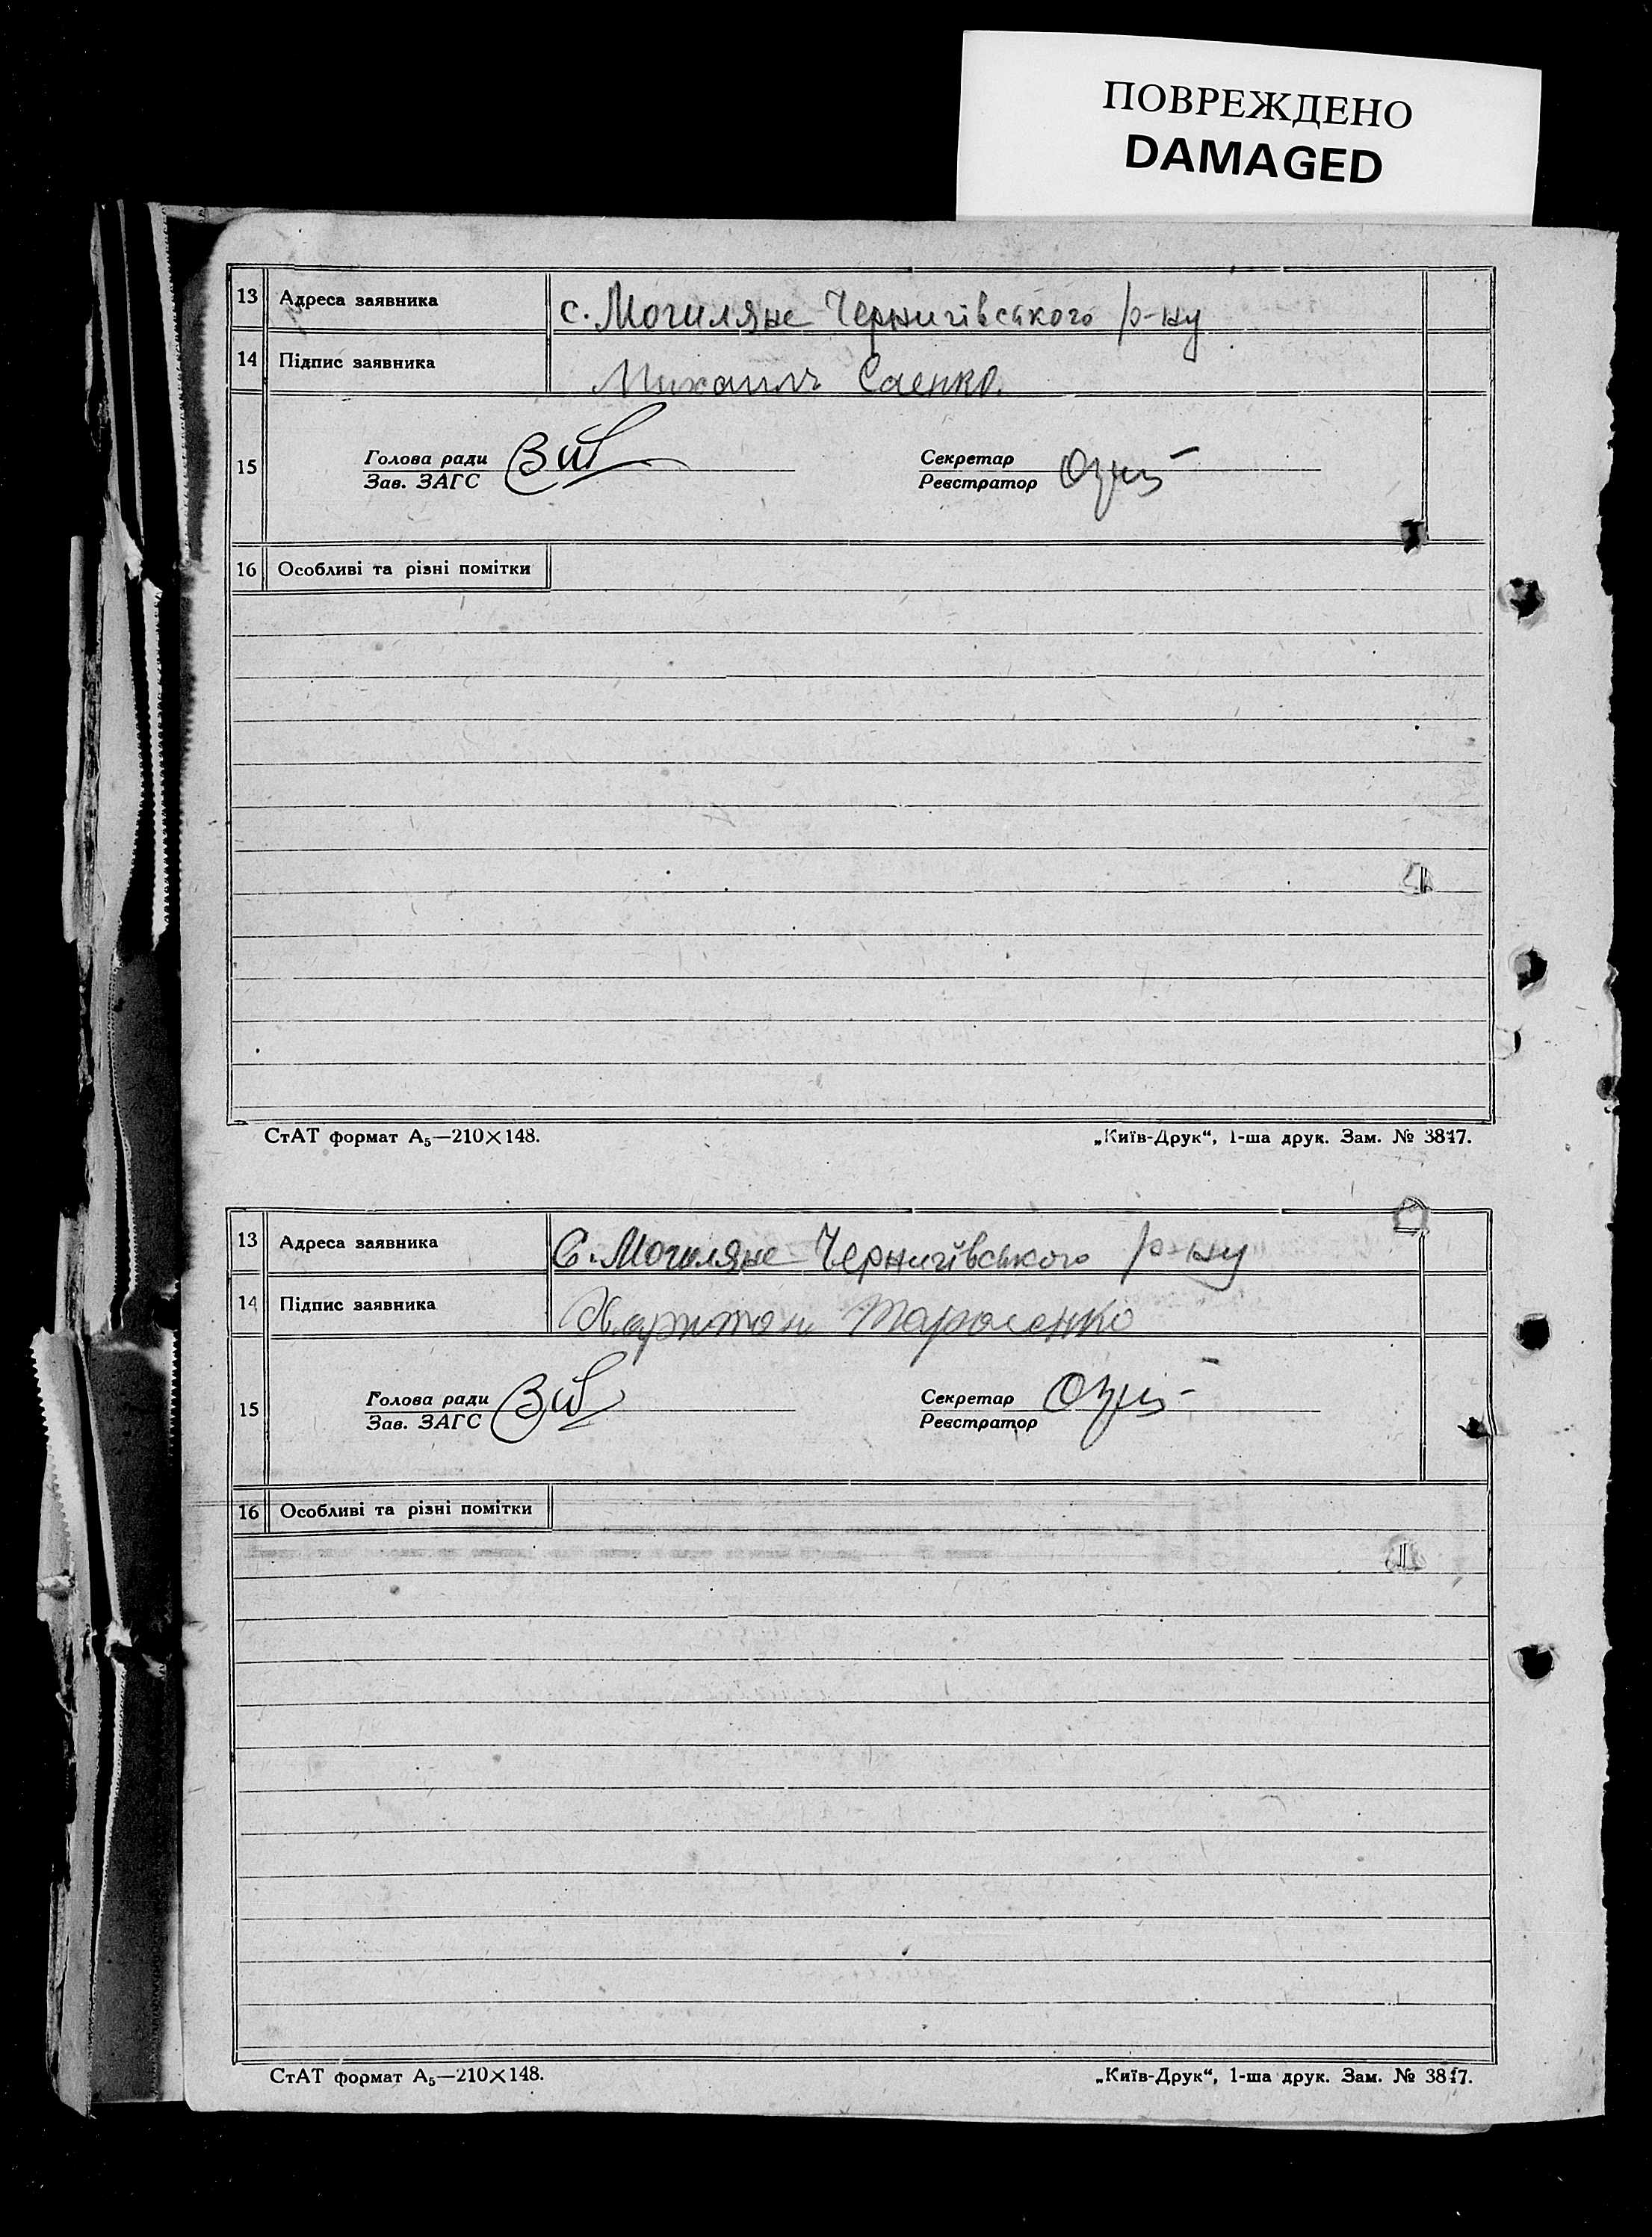 ПОВРЕЖДЕНО
DAMAGED
13 Адреса заявника с. Могиляне Чернигівського р-ну
14 Підпис заявника Михаилъ Саенко.
15 Голова ради Секретар
Зав. ЗАГС Реєстратор
16 Особливі та різні помітки
СтАТ формат А₅—210×148. „Київ-Друк“, 1-ша друк. Зам. № 3817.
13 Адреса заявника С. Могиляне Чернигівського р-ну
14 Підпис заявника Харитон Тарасенко
15 Голова ради Секретар
Зав. ЗАГС Реєстратор
16 Особливі та різні помітки
СтАТ формат А₅—210×148. „Київ-Друк“, 1-ша друк. Зам. № 3817.